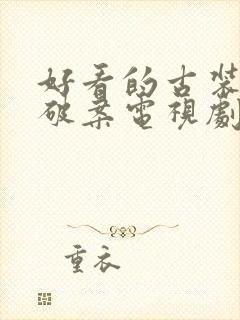 好看的古裝
破案電視劇
重衣